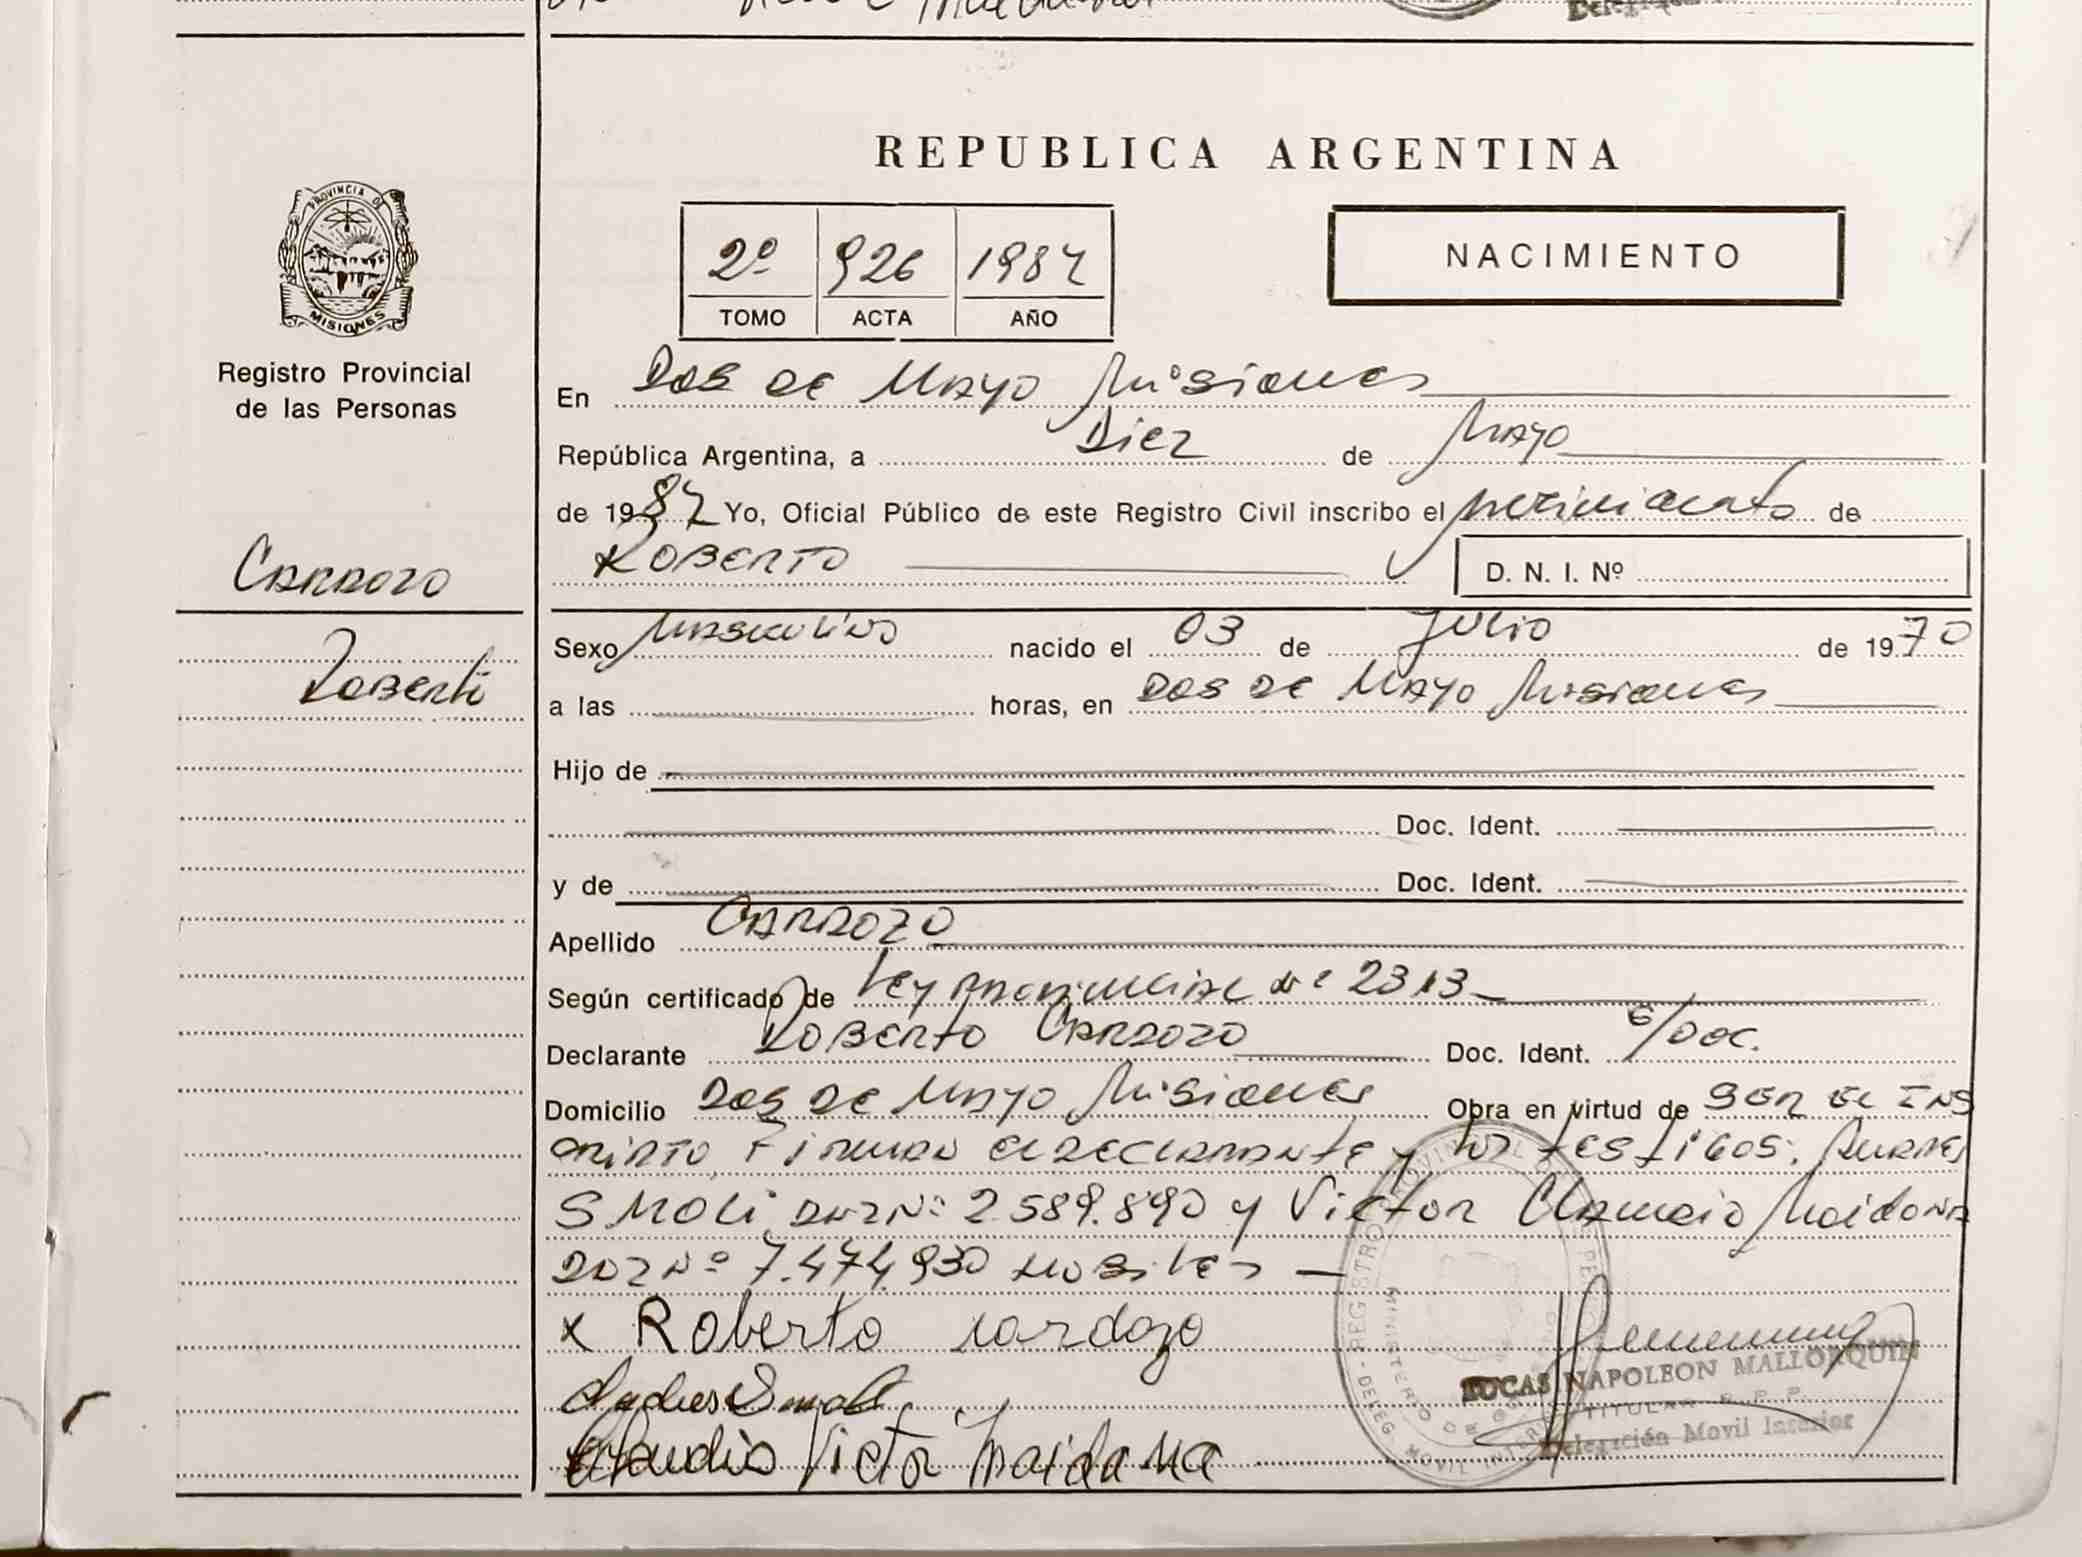 REPUBLICA ARGENTINA
PROVINCIA DE
MISIONES
Registro Provincial
de las Personas
2º 926 1987
TOMO ACTA AÑO
NACIMIENTO
En Dos de Mayo Misiones
República Argentina, a Diez de Mayo
de 1987 Yo, Oficial Público de este Registro Civil inscribo el nacimiento de
Roberto D. N. I. Nº
Cardozo
Roberto
Sexo Masculino nacido el 03 de Julio de 1970
a las horas, en Dos de Mayo Misiones
Hijo de
Doc. Ident.
y de Doc. Ident.
Apellido Cardozo
Según certificado de Ley Provincial Nº 2313
Declarante Roberto Cardozo Doc. Ident. s/Doc.
Domicilio Dos de Mayo Misiones Obra en virtud de ser el ins
cripto Firman el declarante y los testigos:
SMOLI DNI Nº 2.589.890 y Victor Claudio Maidana
DNI Nº 7.474.930
x Roberto cardozo
Andres Smoli
Claudio Victor Maidana
LUCAS NAPOLEON MALLORQUIN
TITULAR R.P.P.
Delegación Movil Interior